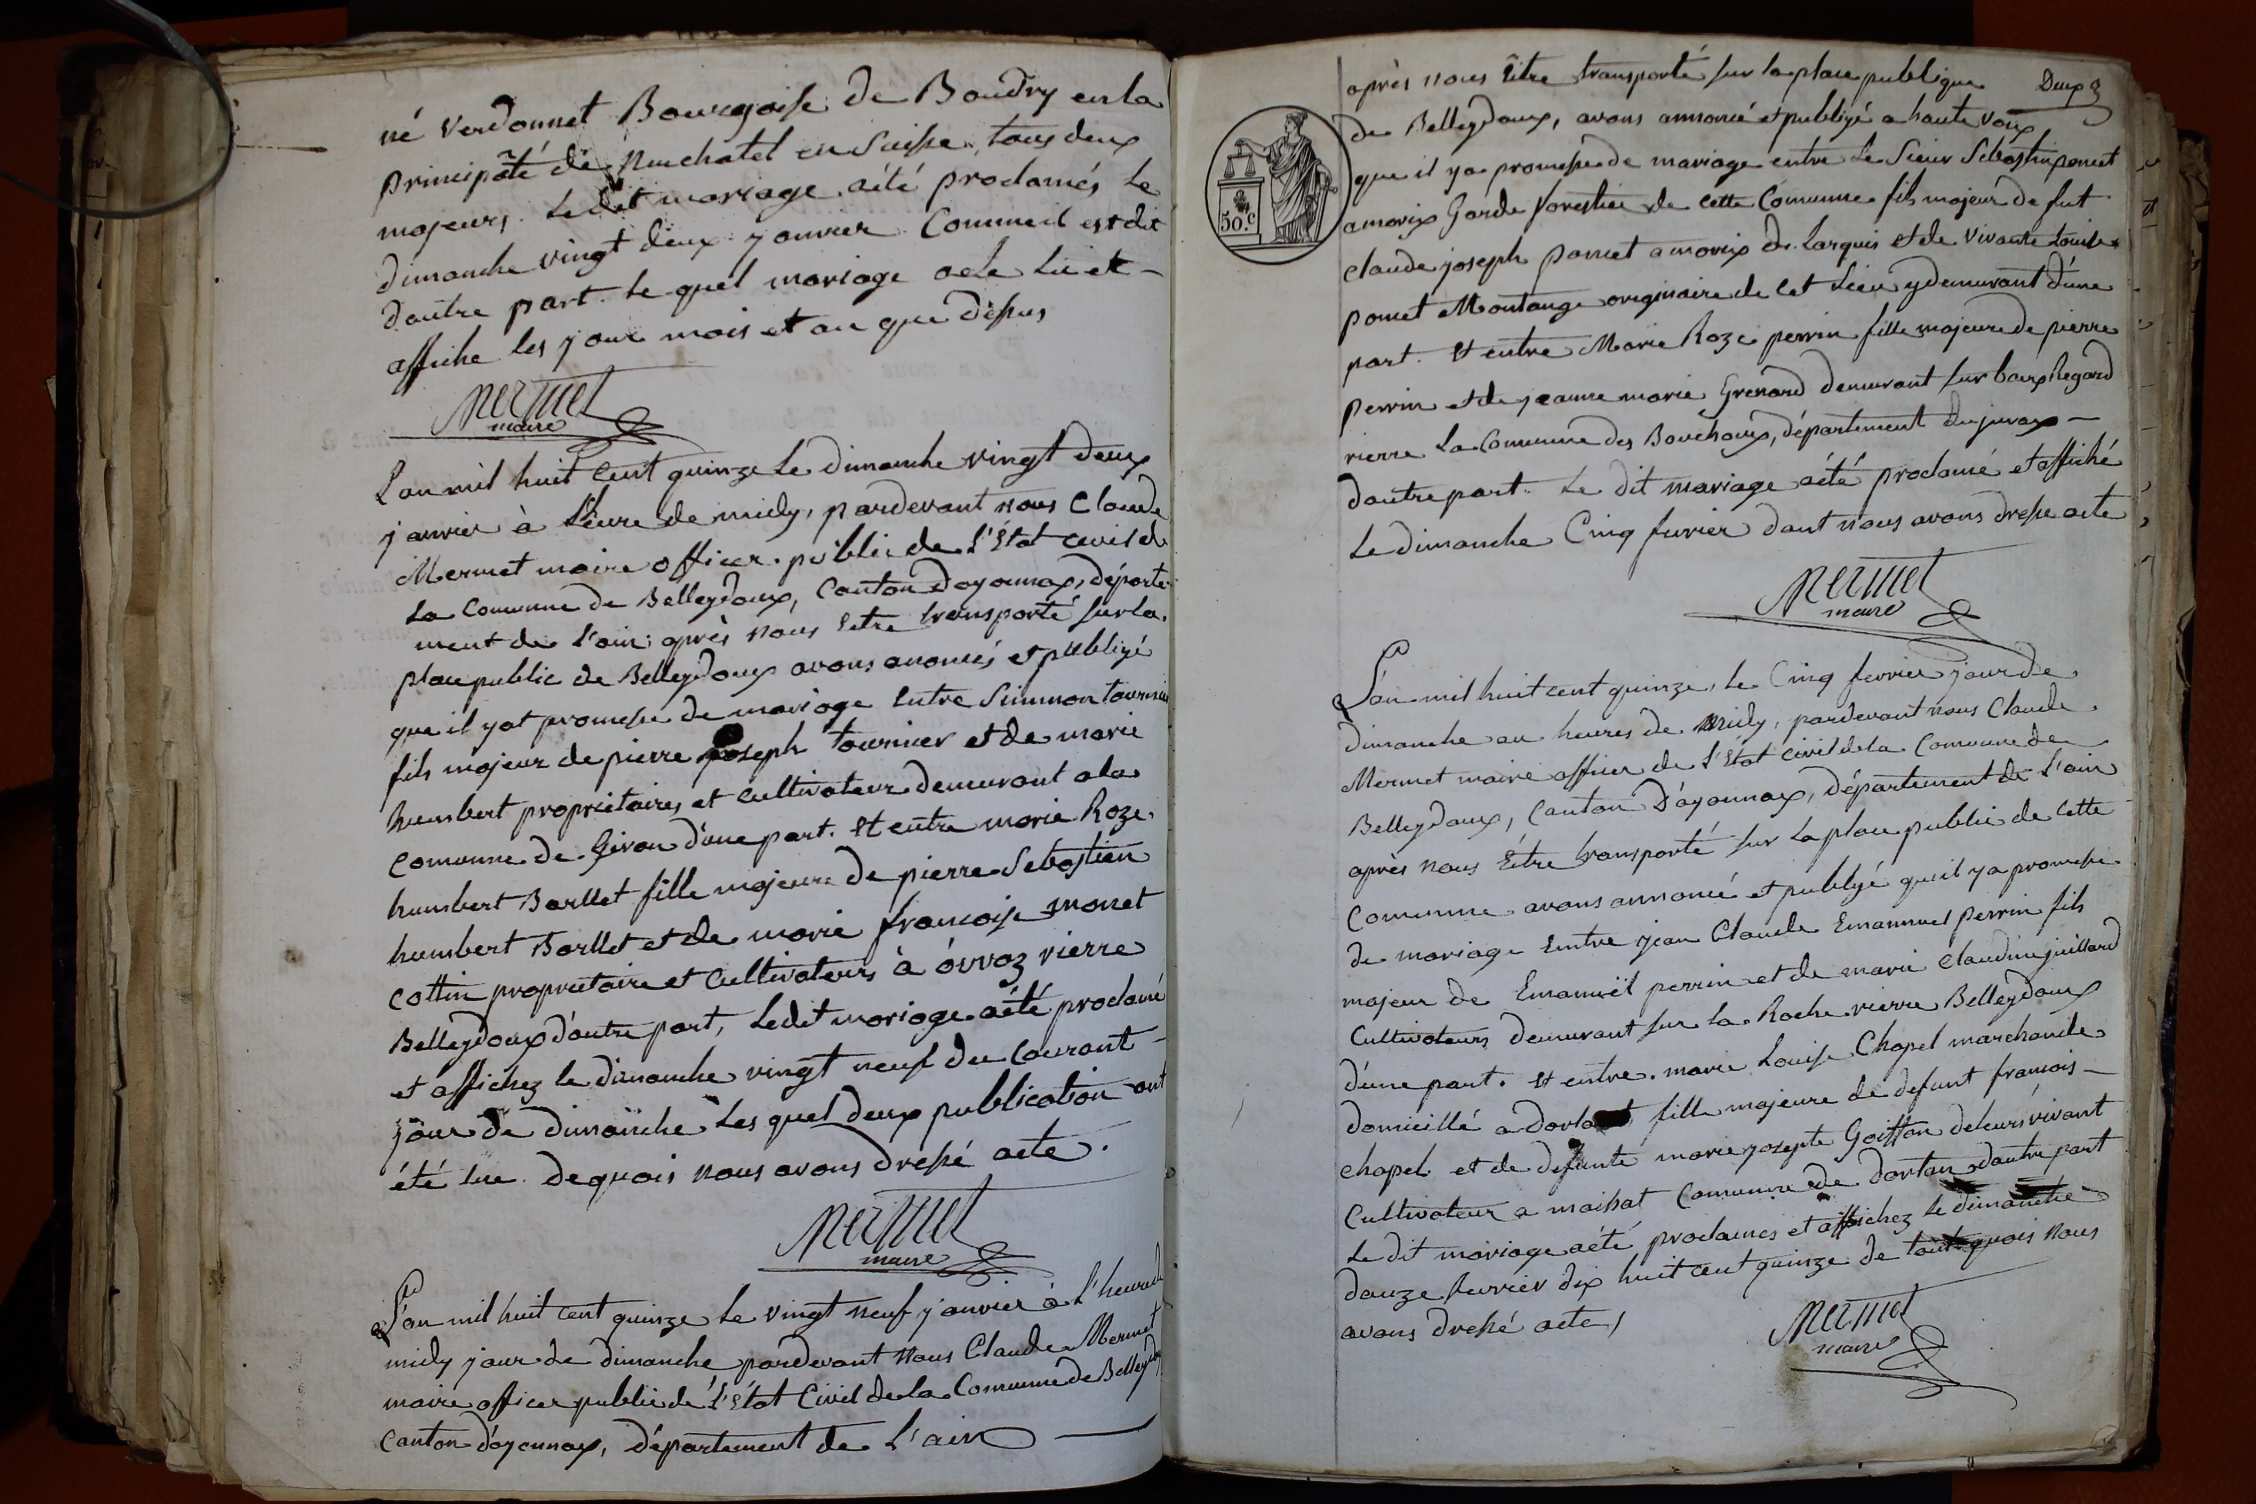 né Verdonnet Bourgoise de Boudry en la
principáté de Neuchatel en Suisse, tous deux
majeurs. Ledit mariage aété proclamés le
dimanche vingt deux janvier Comme il est dit
dautre part. le quel mariage a ele lu et -
affiche les jour mois et an que désus
Mermet
maire
L'an mil huit Cent quinze le dimanche vingt deux
janvier à l'eure de midy, pardevant nous Claude
Mermet maire officier public de l'État Civil de
la Comunne de Belleydoux, Canton Doyonnax, départe-
ment de l'ain; après nous Estre transporté sur la
place public de Belleydoux avons anoncés et publiyé
que il yat promesse de mariage Entre Simmon tournier
fils majeur de pierre joseph tournier et de marie
humbert propriétaires et cultivateur demeurant a la
Comunne de Giron d'une part. Et entre marie Roze
humbert Barllet fille majeure de pierre Sebastien
humbert Barllet et de marie francoise monet
Cottin propriétaire et Cultivateurs à órvaz rierre
Belleydoux d'autre part, Ledit mariage aété proclamé
et affichez le dimanche vingt neuf du Courant -
jour de dimanche Les quel deux publication ont
été lue. dequois nous avons dressé acte.
Mermet
maire
L'an mil huit Cent quinze le vingt neuf janvier à l'heure de
midy jour de dimanche pardevant nous Claude Mermet
maire officier public de l'État Civil de la Comunne de Belleydoux
Canton d'oyonnax, département de L'ain
Deux
après nous Être transporté sur la place publique
de Belleydoux, avons annoncé et publiyé a haute voix
50.c
que il ya promesse de mariage entre Le Sieur Sebastien poncet
amorix Garde forestier de cette Comunne fils majeur de fut
Claude joseph poncet amorix de Larquis et de vivante Louise
poncet Montange originaire de Cet Lieu y demeurant d'une
part. Et entre Marie Roze perrin fille majeure de pierre
perrin et de jeanne marie Grenard demeurant sur baux Regard
rierre La Comunne des Bouchoux, département du jurax -
dautre part. Le dit mariage aété proclamé et affiché
Le dimanche Cinq fevrier dont nous avons dresse acte
Mermet
maire
L'an mil huit cent quinze, le Cinq fevrier jour de
dimanche au heures de Midy, pardevant nous Claude
Mermet maire officier de l'État Civil de la Comunne de
Belleydoux, Canton D'oyonnax, département de l'ain
après nous Être transporté sur la place public de cette
Comunne avons annoncé et publiyé qu'il ya promesse
de mariage Emtre jean Claude Emannuel perrin fils
majeur de Emanuël perrin et de marie Claudine juillard
Cultivateurs demeurant sur la Roche rierre Belleydoux
d'une part. Et entre marie Louise Chapel marchande
domicillé a fille majeure de defunt francois -
chapel et de defunte marie josepte Goiffon deleurs vivant
Cultivateur a maissat Comunne de dortan dautre part
Le dit mariage aété proclamés et affichez le dimanche
douze fevrier dix huit cent quinze de tout quois nous
avons dressé acte,
Mermet
maire